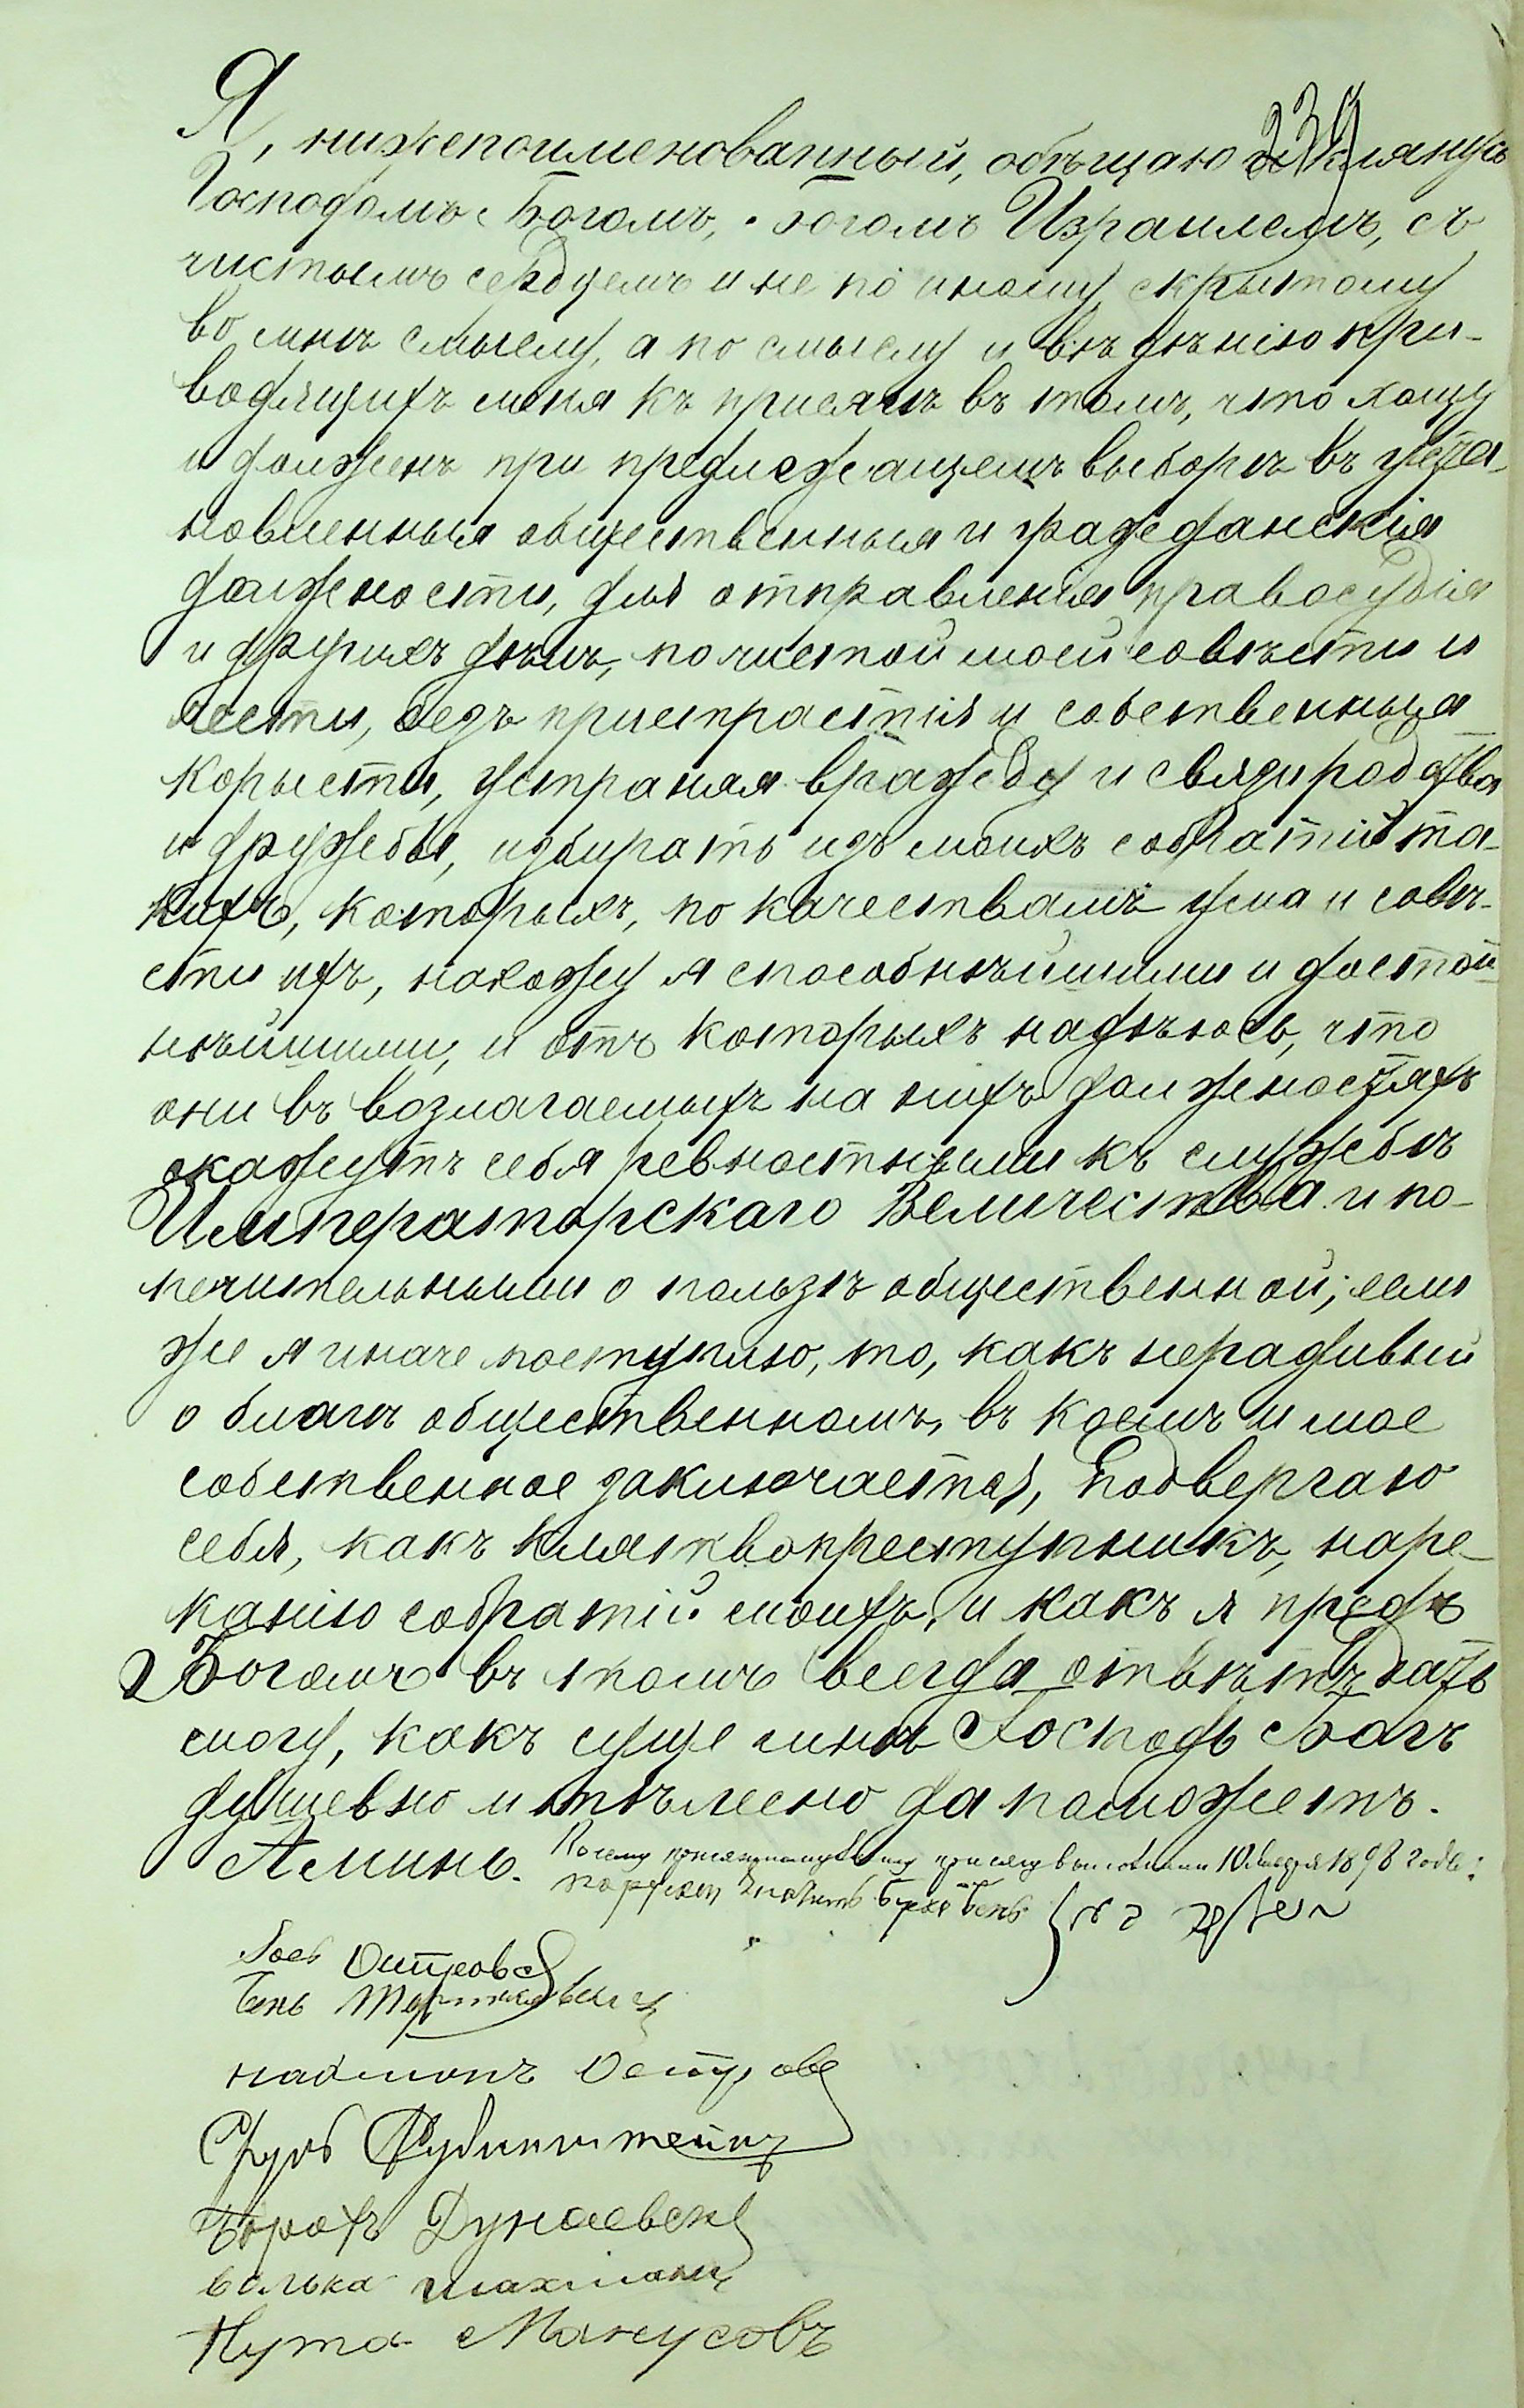 239
Я, нижепоименованный, обѣщаю и клянусь
Господомъ Богомъ, Богомъ Израилемъ, съ
чистымъ сердцемъ и не по иному скрытому
во мнѣ смыслу, а по смыслу и вѣдѣнію при-
водящихъ меня къ присягѣ въ томъ, что хощу
и долженъ при предлежащемъ выборѣ въ уста-
новленныя общественныя и гражданскія
должности, для отправленія правосудія
и другихъ дѣлъ, по чистой моей совѣсти и
чести, безъ пристрастія и собственныя
корысти, устраняя вражду и связи родства
и дружбы, избирать изъ моихъ собратій та-
кихъ, которыхъ, по качествамъ ума и совѣ-
сти ихъ, нахожу я способнѣйшими и достой-
нѣйшими, и отъ которыхъ надѣюсь, что
они въ возлагаемыхъ на нихъ должностяхъ
окажутъ себя ревностными къ службѣ
Императорскаго Величества и по-
печительными о пользѣ общественной; если
же я иначе поступлю, то, какъ нерадивый
о благѣ общественномъ, въ коемъ и мое
собственное заключается, подвергаю
себя, какъ клятвопреступникъ, наре-
канію собратій моихъ, и какъ я предъ
Богомъ въ томъ всегда отвѣтъ дать
могу, какъ суще мнѣ Господь Богъ
душевно и тѣлесно да поможетъ.
Аминь.
присягу выполнили 10 1898 года:
Островс
Бень
Нахманъ Остров
Рубинштейнъ
Борохъ Дунаевск
Волька Шахманъ
Нута Манусовъ